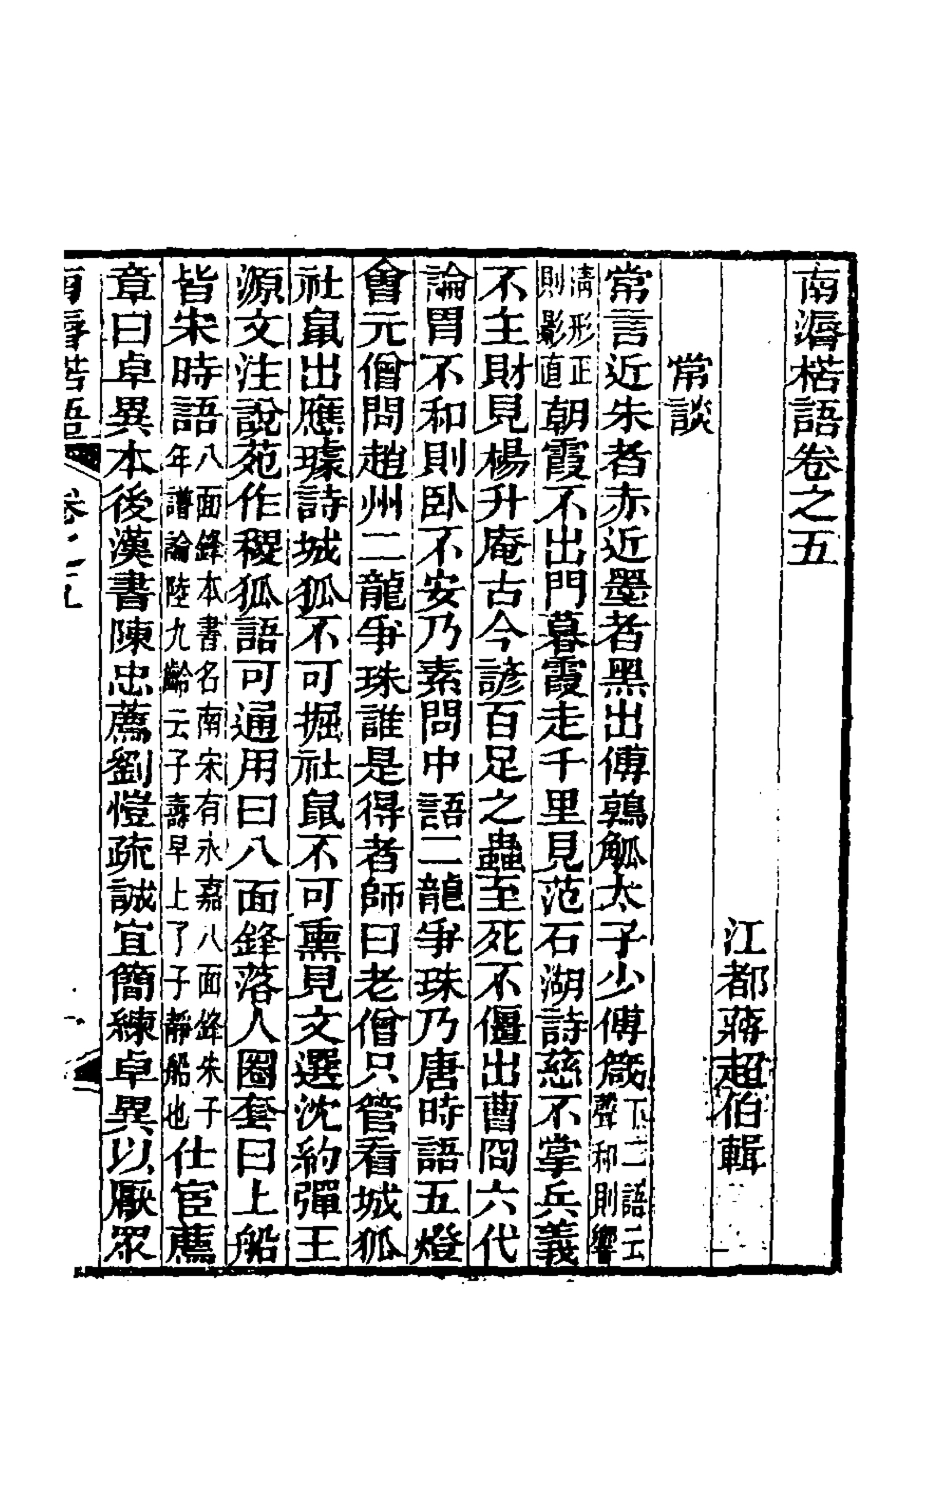 南漘楛語卷之五
江都蔣超伯輯
常談
常言近朱者赤近墨者黑出傅鶉觚太子少傅箴下二語云聲和則響
清形正則影直朝霞不出門暮霞走千里見范石湖詩慈不掌兵義
不主財見楊升庵古今諺百足之蟲至死不僵出曹冏六代
論胃不和則臥不安乃素問中語二龍爭珠乃唐時語五燈
會元僧問趙州二龍爭珠誰是得者師曰老僧只管看城狐
社鼠出應璩詩城狐不可掘社鼠不可熏見文選沈約彈王
源文注說苑作稷狐語可通用曰八面鋒落人圈套曰上船
皆宋時語八面鋒本書名南宋有永嘉八面鋒朱子年譜論陸九齡云子壽早上了子靜船也仕宦薦
章曰卓異本後漢書陳忠薦劉愷疏誠宜簡練卓異以厭眾
南漘楛語 卷之五